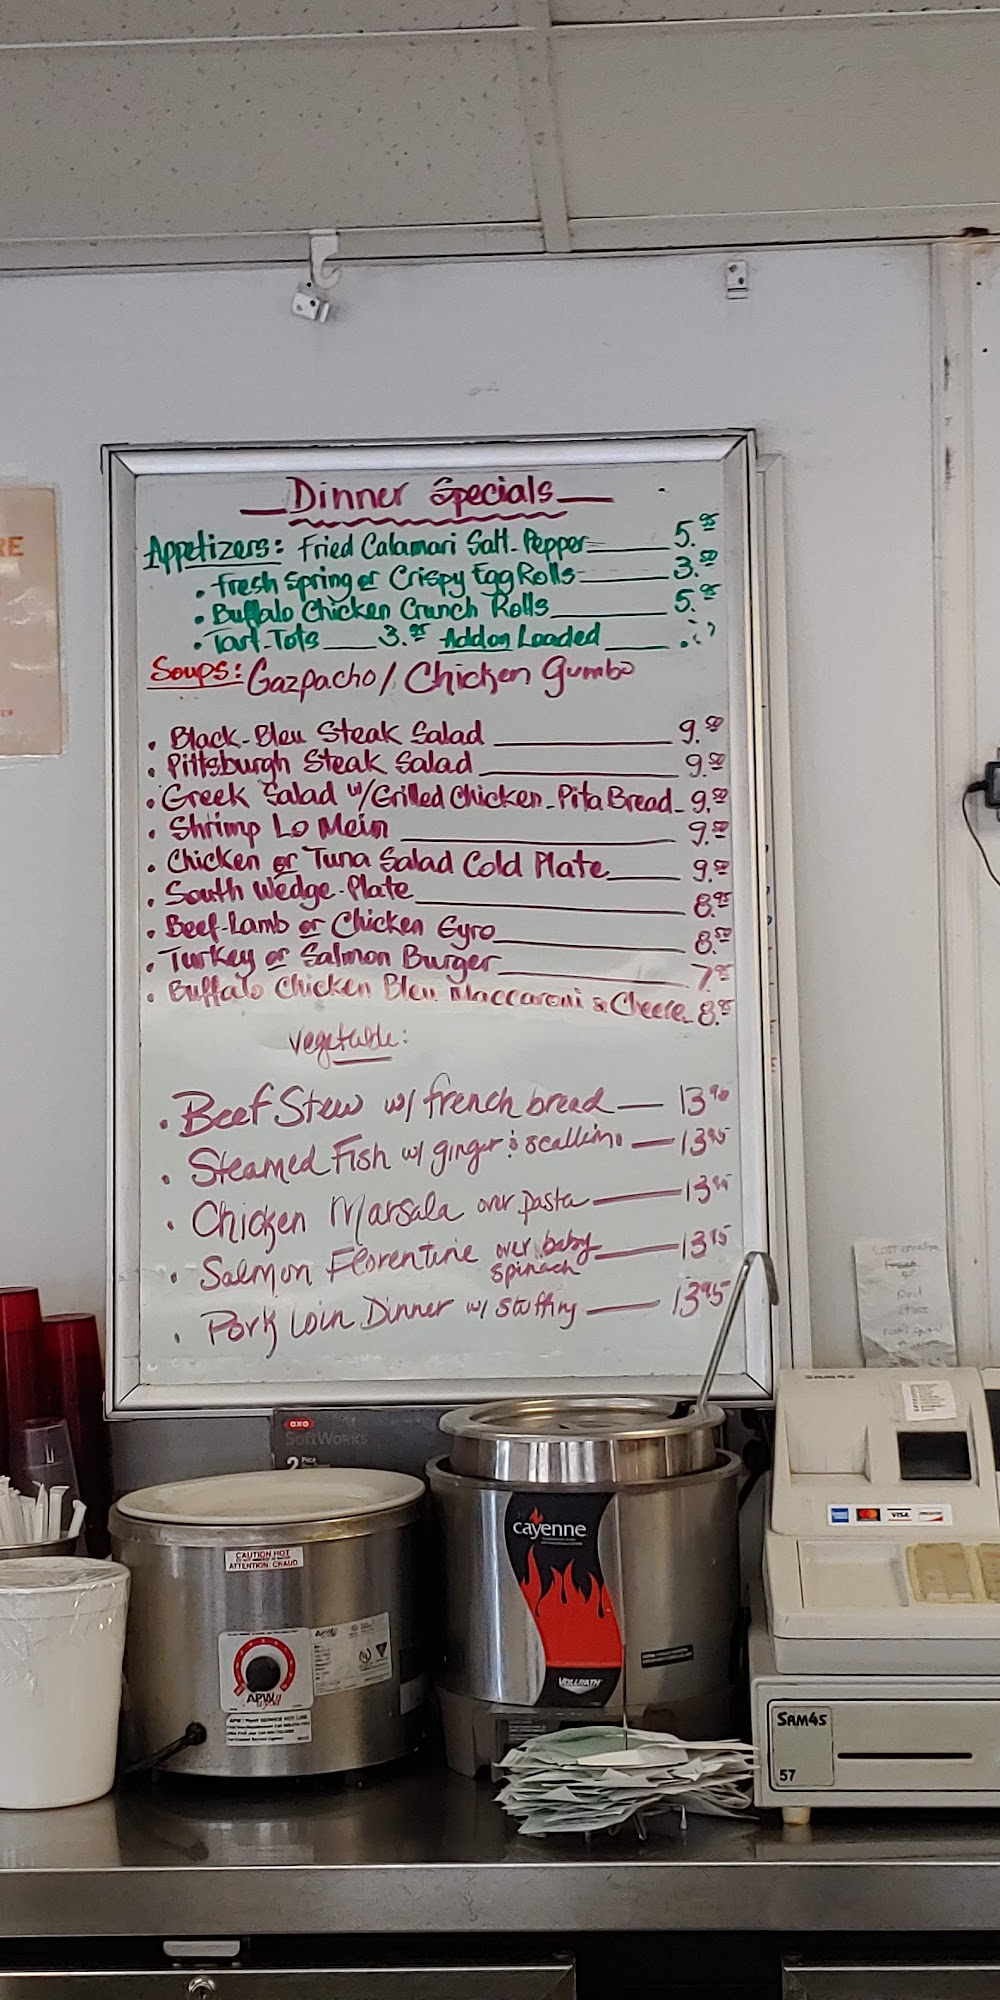 Dinner Specials
Appetizers: Fried Calamari Salt-Pepper 5.95
• Fresh Spring or Crispy Egg Rolls 3.50
• Buffalo Chicken Crunch Rolls 5.95
• Tart-Tots 3.95 Add on Loaded
Soups: Gazpacho / Chicken Gumbo
• Black-Bleu Steak Salad 9.50
• Pittsburgh Steak Salad 9.50
• Greek Salad w/Grilled Chicken-Pita Bread 9.50
• Shrimp Lo Mein 9.50
• Chicken or Tuna Salad Cold Plate 9.50
• South Wedge-Plate 8.95
• Beef-Lamb or Chicken Gyro 8.50
• Turkey or Salmon Burger 7.95
• Buffalo Chicken Bleu Maccaroni & Cheese 8.95
Vegetable:
• Beef Stew w/ french bread 13.95
• Steamed Fish w/ ginger & scallions 13.95
• Chicken Marsala over pasta 13.95
• Salmon Florentine over baby spinach 13.95
• Pork Loin Dinner w/ stuffing 13.95
RE
OXO
SoftWorks
2 Piece
cayenne
VOLLRATH
CAUTION HOT
ATTENTION: CHAUD
APW
Wyott
VISA
SAM4S
57